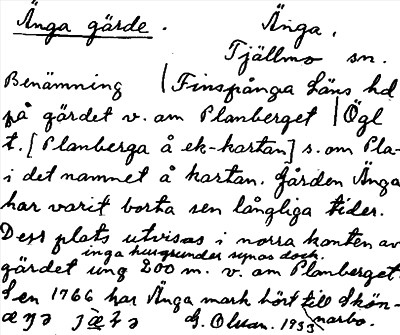 Änga gärde. Änga,
Tjällmo sn.
Benämning | Finspånga Läns hd
på gärdet v. om Planberget | Ögl
t. [Planberga å ek-kartan] s. om Pla-
i det namnet å kartan. Gården Änga
har varit borta sen långliga tider.
Dess plats utvisas i norra kanten av
inga husgrunder synas dock.
gärdet ung 200 m. v. om Planberget.
Sen 1766 har Änga mark hört till Skön-
narbo.
G. Olsson. 1933